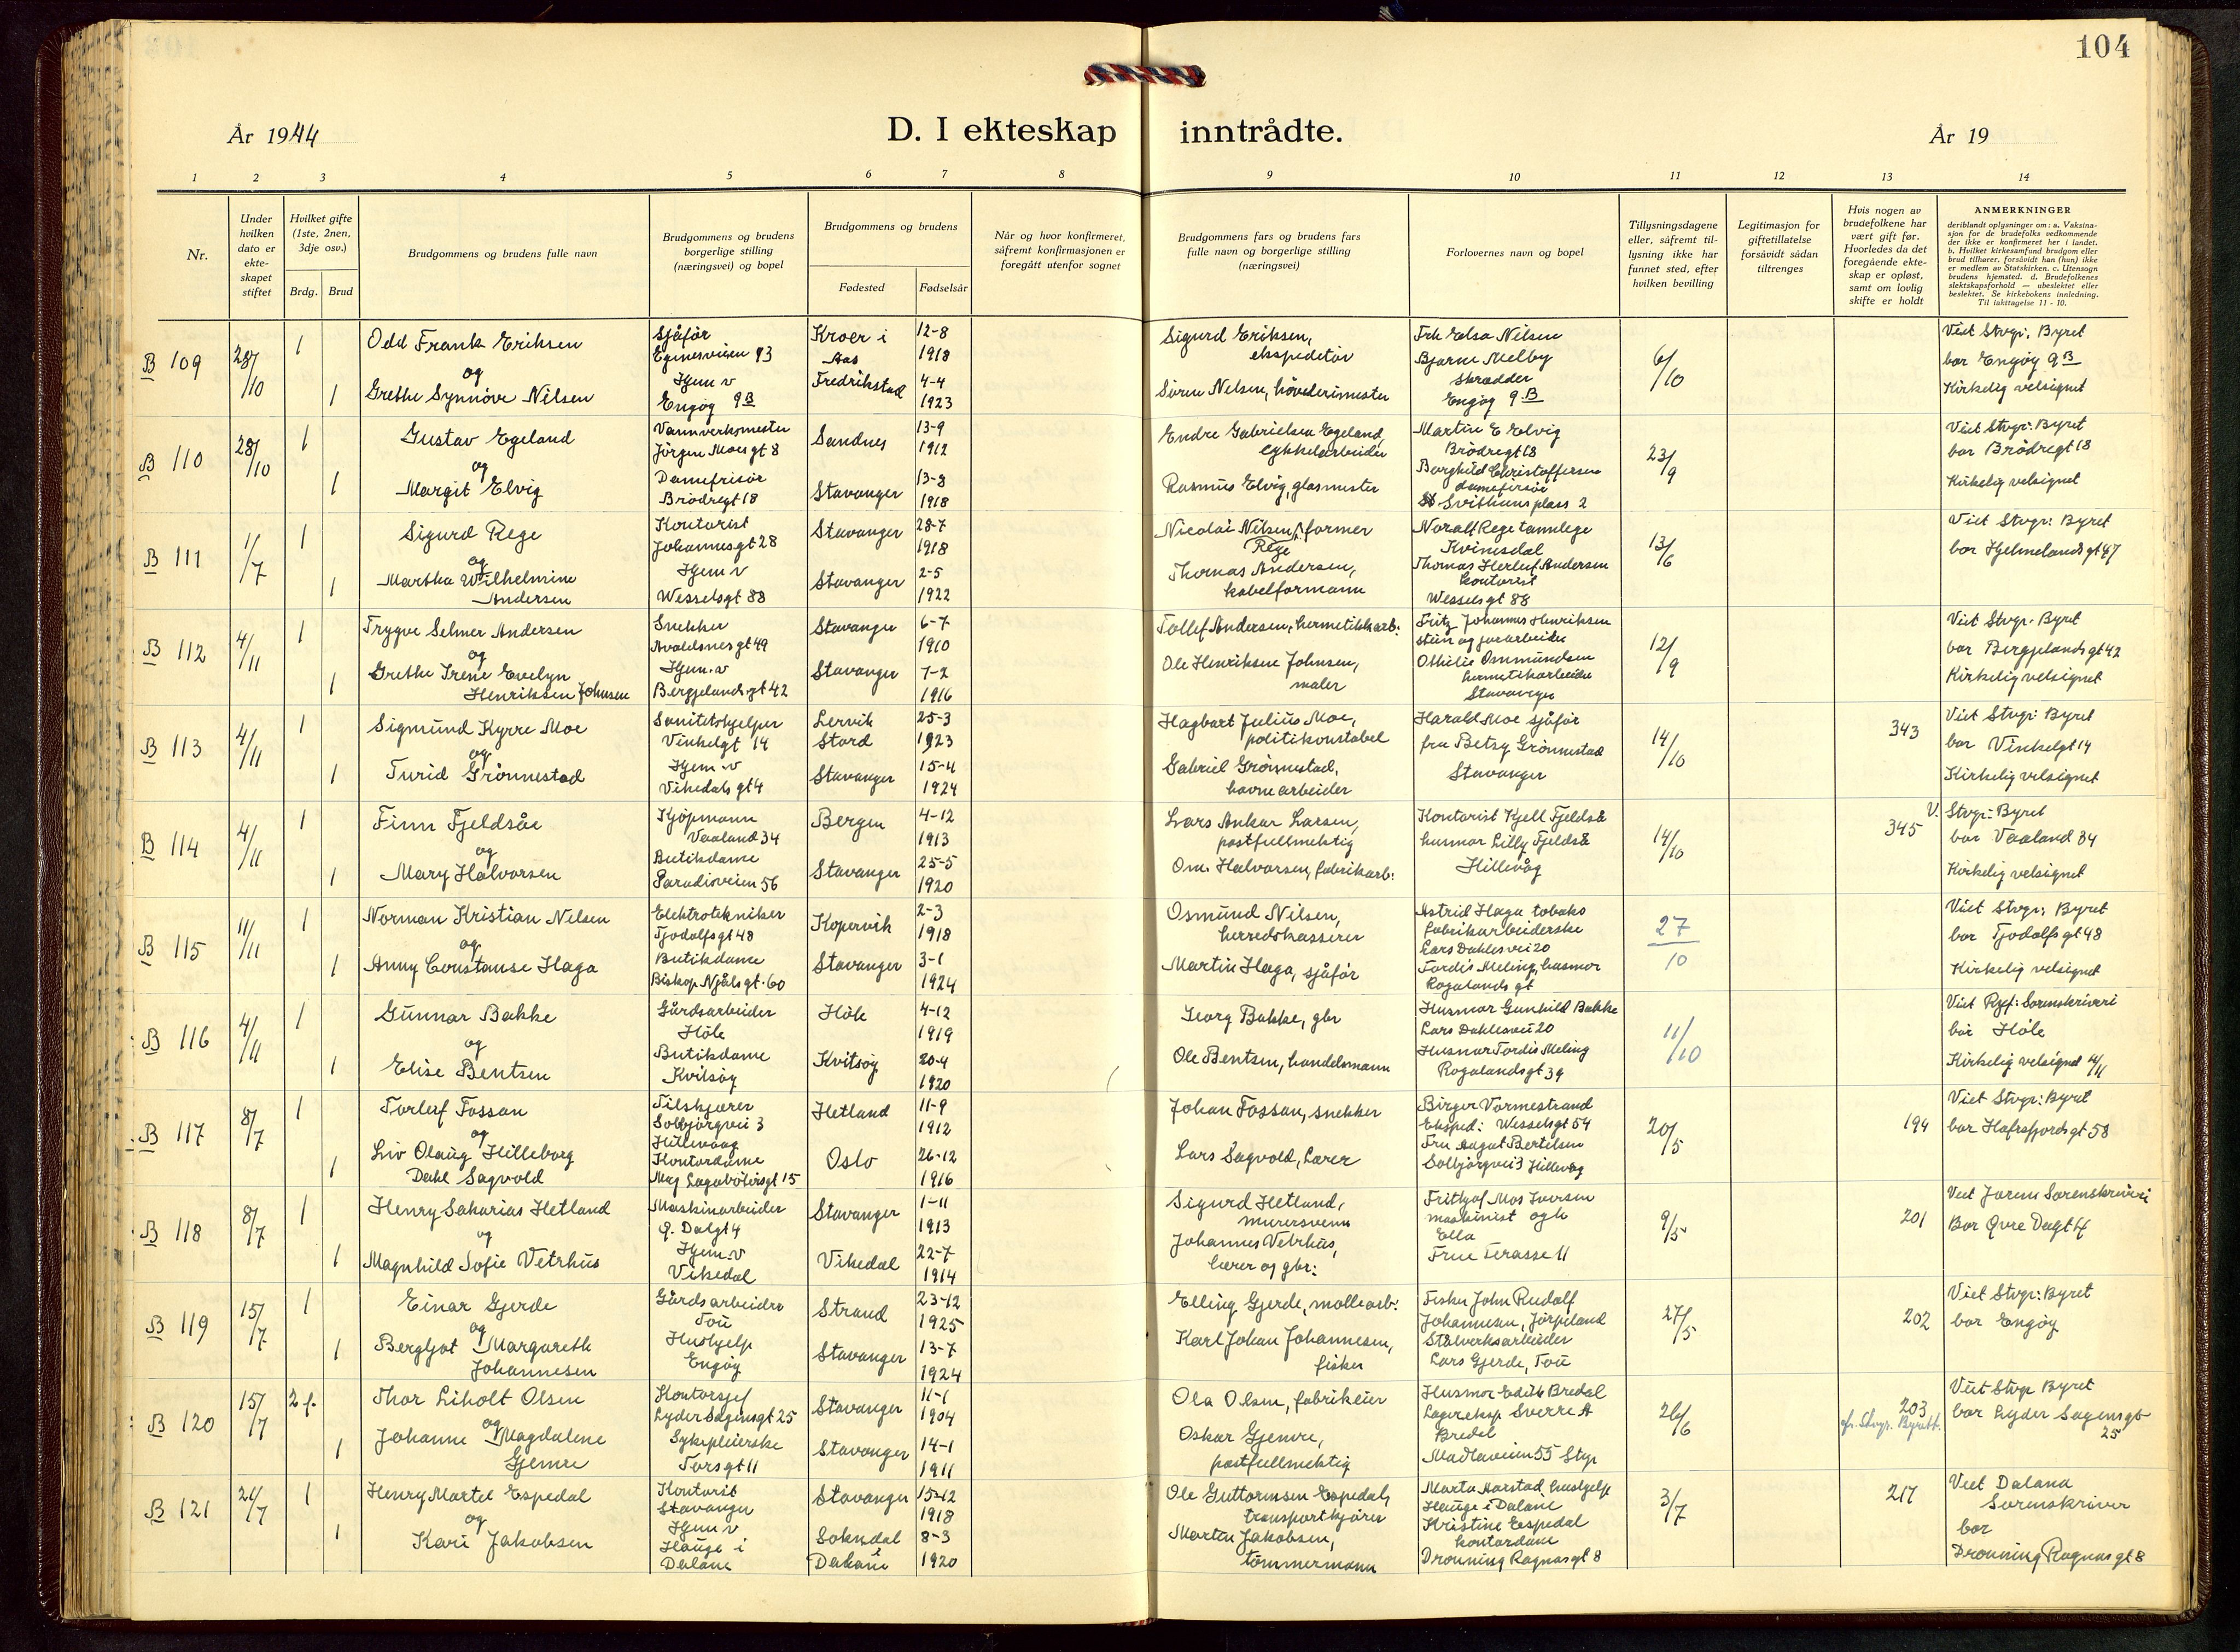 104
År 1944
D. I ekteskap inntrådte.
År 19
1 2 3 4 5 6 7 8 9 10 11 12 13 14
Nr.
Under hvilken dato er ekte- skapet stiftet
Hvilket gifte (1ste, 2nen, 3dje osv.)
Brdg. Brud
Brudgommens og brudens fulle navn
Brudgommens og brudens borgerlige stilling (næringsvei) og bopel
Brudgommens og brudens
Fødested Fødselsår
Når og hvor konfirmeret, såfremt konfirmasjonen er foregått utenfor sognet
Brudgommens fars og brudens fars fulle navn og borgerlige stilling (næringsvei)
Forlovernes navn og bopel
Tillysningsdagene eller, såfremt til- lysning ikke har funnet sted, efter hvilken bevilling
Legitimasjon for giftetillatelse forsåvidt sådan tiltrenges
Hvis nogen av brudefolkene har vært gift før. Hvorledes da det foregående ekte- skap er opløst, samt om lovlig skifte er holdt
ANMERKNINGER
deriblandt oplysninger om: a. Vaksina- sjon for de brudefolks vedkommende der ikke er konfirmeret her i landet. b. Hvilket kirkesamfund brudgom eller brud tilhører, forsåvidt han (hun) ikke er medlem av Statskirken. c. Utensogn brudens hjemsted. d. Brudefolkenes slektskapsforhold — ubeslektet eller beslektet. Se kirkebokens innledning. Til iakttagelse 11 - 10.
B 109 28/10 1
Odd Frank Eriksen
og
1 Grethe Synnöve Nilsen
sjåför
Egenesveien 93
Hjem v
Engöy 9B
Kroer i Aas
12-8 1918
Fredrikstad
4-4 1923
Sigurd Eriksen, ekspeditör
Sören Nelsen, hövderimester
Frk Elsa Nilsen
Bjarne Melby
Skrædder
Engöy 9.B
6/10
Viet Stvgr. Byret
bor Engöy 9B
Kirkelig velsignet
B 110 28/10 1
Gustav Egeland
og
1 Margit Elvig
Vannverksmester
Jörgen Moesgt 8
Damefrisör
Brödregt 18
Sandnes
13-9 1912
Stavanger
13-8 1918
Endre Gabrielsen Egeland, cykkelarbeider
Rasmus Elvig, glasmester
Martin E Elvig
Brödregt 18
Borghild Christoffersen
damefrisör
St Svithuns plass 2
23/9
Viet Stvgr: Byret
bor Brödregt 18
Kirkelig velsignet
B 111 1/7 1
Sigurd Rege
og
1 Martha Wilhelmine
Andersen
Kontorist
Johannesgt 28
Hjem v
Wesselsgt 88
Stavanger
28-7 1918
Stavanger
2-5 1922
Nicolai Nilsen Rege, former
Thomas Andersen, kabelformann
Noralf Rege tannlege
Kvinesdal
Thomas Herluf Andersen
kontorist
Wesselsgt 88
13/6
Viet Stvgr: Byret
bor Hjelmelandsgt 47
B 112 4/11 1
Trygve Selmer Andersen
og
1 Grethe Irene Evelyn
Henriksen Johnsen
Snekker
Avaldsnesgt 49
Hjem. v
Bergjelandsgt 42
Stavanger
6-7 1910
Stavanger
7-2 1916
Tollef Andersen, hermetikkarb:
Ole Henriksen Johnsen, maler
Fritz Johannes Henriksen
stein og jordarbeider
Othilie Ommundsen
hermetikarbeider
Stavanger
12/9
Viet Stvgr. Byret
bor Bergjelandsgt 42
Kirkelig velsignet
B 113 4/11 1
Sigmund Kyrre Moe
og
1 Turid Grönnestad
Sanitetshjelper
Vinkelgt 14
Hjem. v
Vikedalsgt 4
Lervik Stord
25-3 1923
Stavanger
15-4 1924
Hagbart Julius Moe, politikonstabel
Gabriel Grönnestad, havnearbeider
Harald Moe sjåför
fru Betsy Grönnestad
Stavanger
14/10
343
Viet Stvgr: Byret
bor Vinkelgt 14
Kirkelig velsignet
B 114 4/11 1
Finn Fjeldsåe
og
1 Mary Halvorsen
Kjöpmann
Vaaland 34
Butikdame
Paradisveien 56
Bergen
4-12 1913
Stavanger
25-5 1920
Lars Ankar Larsen, postfullmektig
Om. Halvorsen, fabrikarb:
Kontorist Kjell Fjeldså
husmor Lilly Fjeldså
Hillevåg
14/10
345
V. Stvgr: Byret
bor Vaaland 34
Kirkelig velsignet
B 115 11/11 1
Norman Kristian Nilsen
og
1 Anny Constanse Haga
Elektrotekniker
Tjodolfsgt 48
Butikdame
Biskop Njålsgt. 60
Kopervik
2-3 1918
Stavanger
3-1 1924
Osmund Nilsen, herredskasserer
Martin Haga, sjåför
Astrid Haga tobaks
fabrikarbeiderske
Lars Dahlesvei 20
Tordis Meling, husmor
Rogalandsgt
27/10
Viet Stvgr: Byret
bor Tjodolfsgt 48
Kirkelig velsignet
B 116 4/11 1
Gunnar Bakke
og
1 Elise Bentsen
Gårdsarbeider
Höle
Butikdame
Kvitsöy
Höle
4-12 1919
Kvitsöy
20-4 1920
Georg Bakke, gbr
Ole Bentsen, handelsmann
Husmor Gunhild Bakke
Lars Dahlesvei 20
Husmor Tordis Meling
Rogalandsgt 39
11/10
Viet Ryf: Sorenskriveri
bor Höle
Kirkelig velsignet 4/11
B 117 8/7 1
Torleif Fossan
og
1 Liv Olaug Hilleborg
Dahl Sagvold
Tilskjærer
Solbjörgvei 3
Hillevaag
Kontordame
Mag Lagabötersgt 15
Hetland
11-9 1912
Oslo
26-12 1916
Johan Fossan, snekker
Lars Sagvold, Lærer
Birger Vormestrand
Eksped: Wesselsgt 54
Fru Aagot Bertelsen
Solbjörgvei 3 Hillevåg
20/5
194
Viet Stvgr: Byret
bor Hafrsfjordsgt 58
B 118 8/7 1
Henry Sakarias Hetland
og
1 Magnhild Sofie Vetrhus
Maskinarbeider
Ö. Dalgt 4
Hjem. v
Vikedal
Stavanger
1-11 1913
Vikedal
22-7 1914
Sigurd Hetland, murersvenn
Johannes Vetrhus, lærer og gbr:
Frithjof Mos Iversen
maskinist og h
Ella
Frue Terasse 11
9/5
201
Viet Jæren Sorenskriveri
Bor Övre Dagt 4
B 119 15/7 1
Einar Gjerde
og
1 Bergljot Margareth
Johannesen
Gårdsarbeider
Tou
Hushjelp
Engöy
Strand
23-12 1925
Stavanger
13-7 1924
Elling Gjerde, mollearb:
Karl Johan Johannesen, fisker
Fisker John Rudolf
Johannesen, Jörpeland
Stålverksarbeider
Lars Gjerde, Tou
27/5
202
Viet Stvgr: Byret
bor Engöy
B 120 15/7 2 f.
Thor Liholt Olsen
og
1 Johanne Magdalene
Gjemre
Kontorsjef
Lyder Sagensgt 25
Sykepleierske
Torsgt 11
Stavanger
11-1 1904
Stavanger
14-1 1911
Ola Olsen, fabrikeier
Oskar Gjemre, postfullmektig
Husmor Edith Bredal
Lagereksp Sverre A
Bredal
Madlaveien 55 Stvgr
26/6
203
gfr. Stvgr. Byrett.
Viet Stvgr Byret
bor Lyder Sagensgt
25
B 121 21/7 1
Henry Martel Espedal
og
1 Kari Jakobsen
Kontorist
Stavanger
Hjem v
Hauge i
Dalane
Stavanger
15-12 1918
Sokndal i Dalane
8-3 1920
Ole Guttormsen Espedal, transportkjörer
Martin Jakobsen, tömmermann
Marta Aarstad hushjelp
Hauge i Dalane
Kristine Espedal
kontordame
Dronning Ragnasgt 8
3/7
217
Viet Dalana
Sorenskriver
bor
Dronning Ragnasgt 8